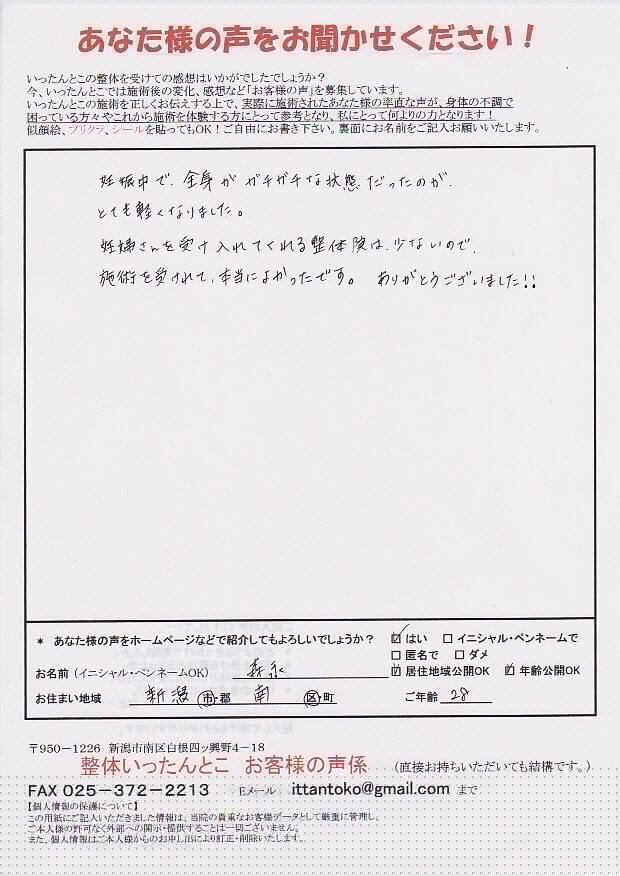 あなた様の声をお聞かせください！
いったんとこの整体を受けての感想はいかがでしたでしょうか？
今、いったんとこでは施術後の変化、感想など「お客様の声」を募集しています。
いったんとこの施術を正しくお伝えする上で、実際に施術されたあなた様の率直な声が、身体の不調で
困っている方々やこれから施術を体験する方にとって参考となり、私にとって何よりの力となります！
似顔絵、プリクラ、シールを貼ってもOK！ご自由にお書き下さい。裏面にお名前をご記入お願いいたします。
妊娠中で、全身がガチガチな状態だったのが、
とても軽くなりました。
妊婦さんを受け入れてくれる整体院は、少ないので、
施術を受けれて、本当によかったです。 ありがとうございました!!
＊ あなた様の声をホームページなどで紹介してもよろしいでしょうか？ ☑ はい □ イニシャル・ペンネームで
□ 匿名で □ ダメ
お名前（イニシャル・ペンネームOK） 森永 ☑ 居住地域公開OK ☑ 年齢公開OK
お住まい地域 新潟 市・郡 南 区・町 ご年齢 28
〒950－1226 新潟市南区白根四ッ興野4－18
整体いったんとこ お客様の声係 （直接お持ちいただいても結構です。）
FAX 025－372－2213 Eメール ittantoko@gmail.com まで
【個人情報の保護について】
この用紙にご記入いただきました情報は、当院の貴重なお客様データとして厳重に管理し、
ご本人様の許可なく外部への開示・提供することは一切ございません。
また、個人情報はご本人様からのお申し出により訂正・削除いたします。